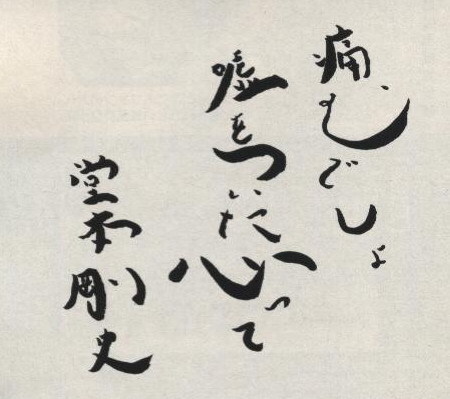 痛むでしょ
嘘をついた心って
堂本剛史